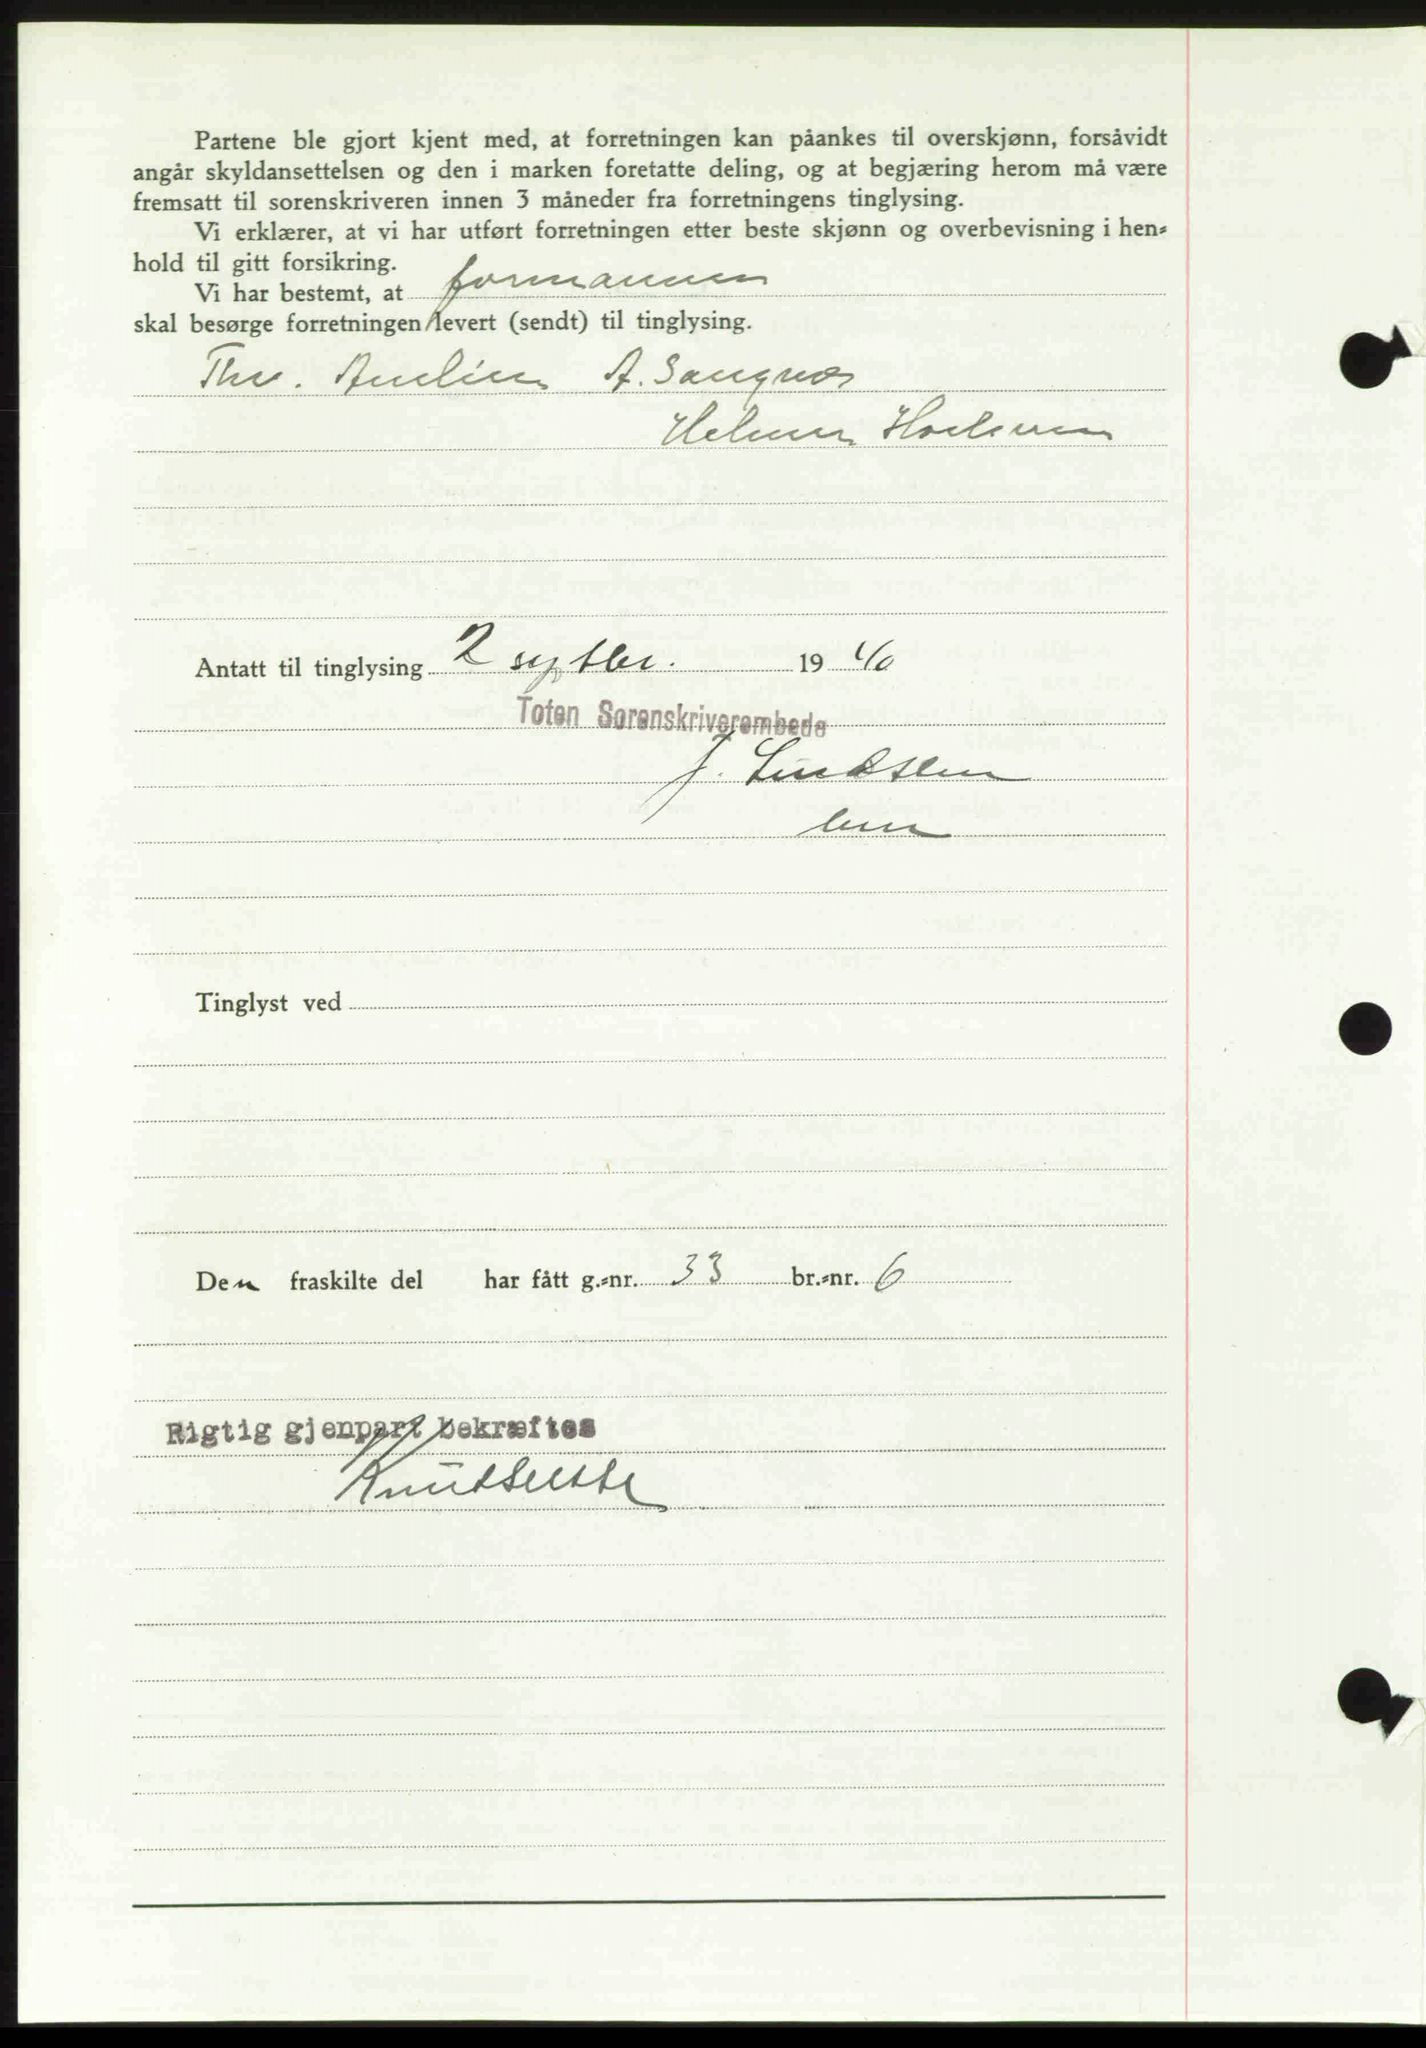 Partene ble gjort kjent med, at forretningen kan påankes til overskjønn, forsåvidt
angår skyldansettelsen og den i marken foretatte deling, og at begjæring herom må være
fremsatt til sorenskriveren innen 3 måneder fra forretningens tinglysing.
Vi erklærer, at vi har utført forretningen etter beste skjønn og overbevisning i hen-
hold til gitt forsikring.
Vi har bestemt, at formannen
skal besørge forretningen levert (sendt) til tinglysing.
Thv. A. Sangnæs
Helmer
Antatt til tinglysing 2 septbr. 1940
Toten Sorenskriverembede
J.
Tinglyst ved
Den fraskilte del har fått g.-nr. 33 br.-nr. 6
Rigtig gjenpart bekræftes